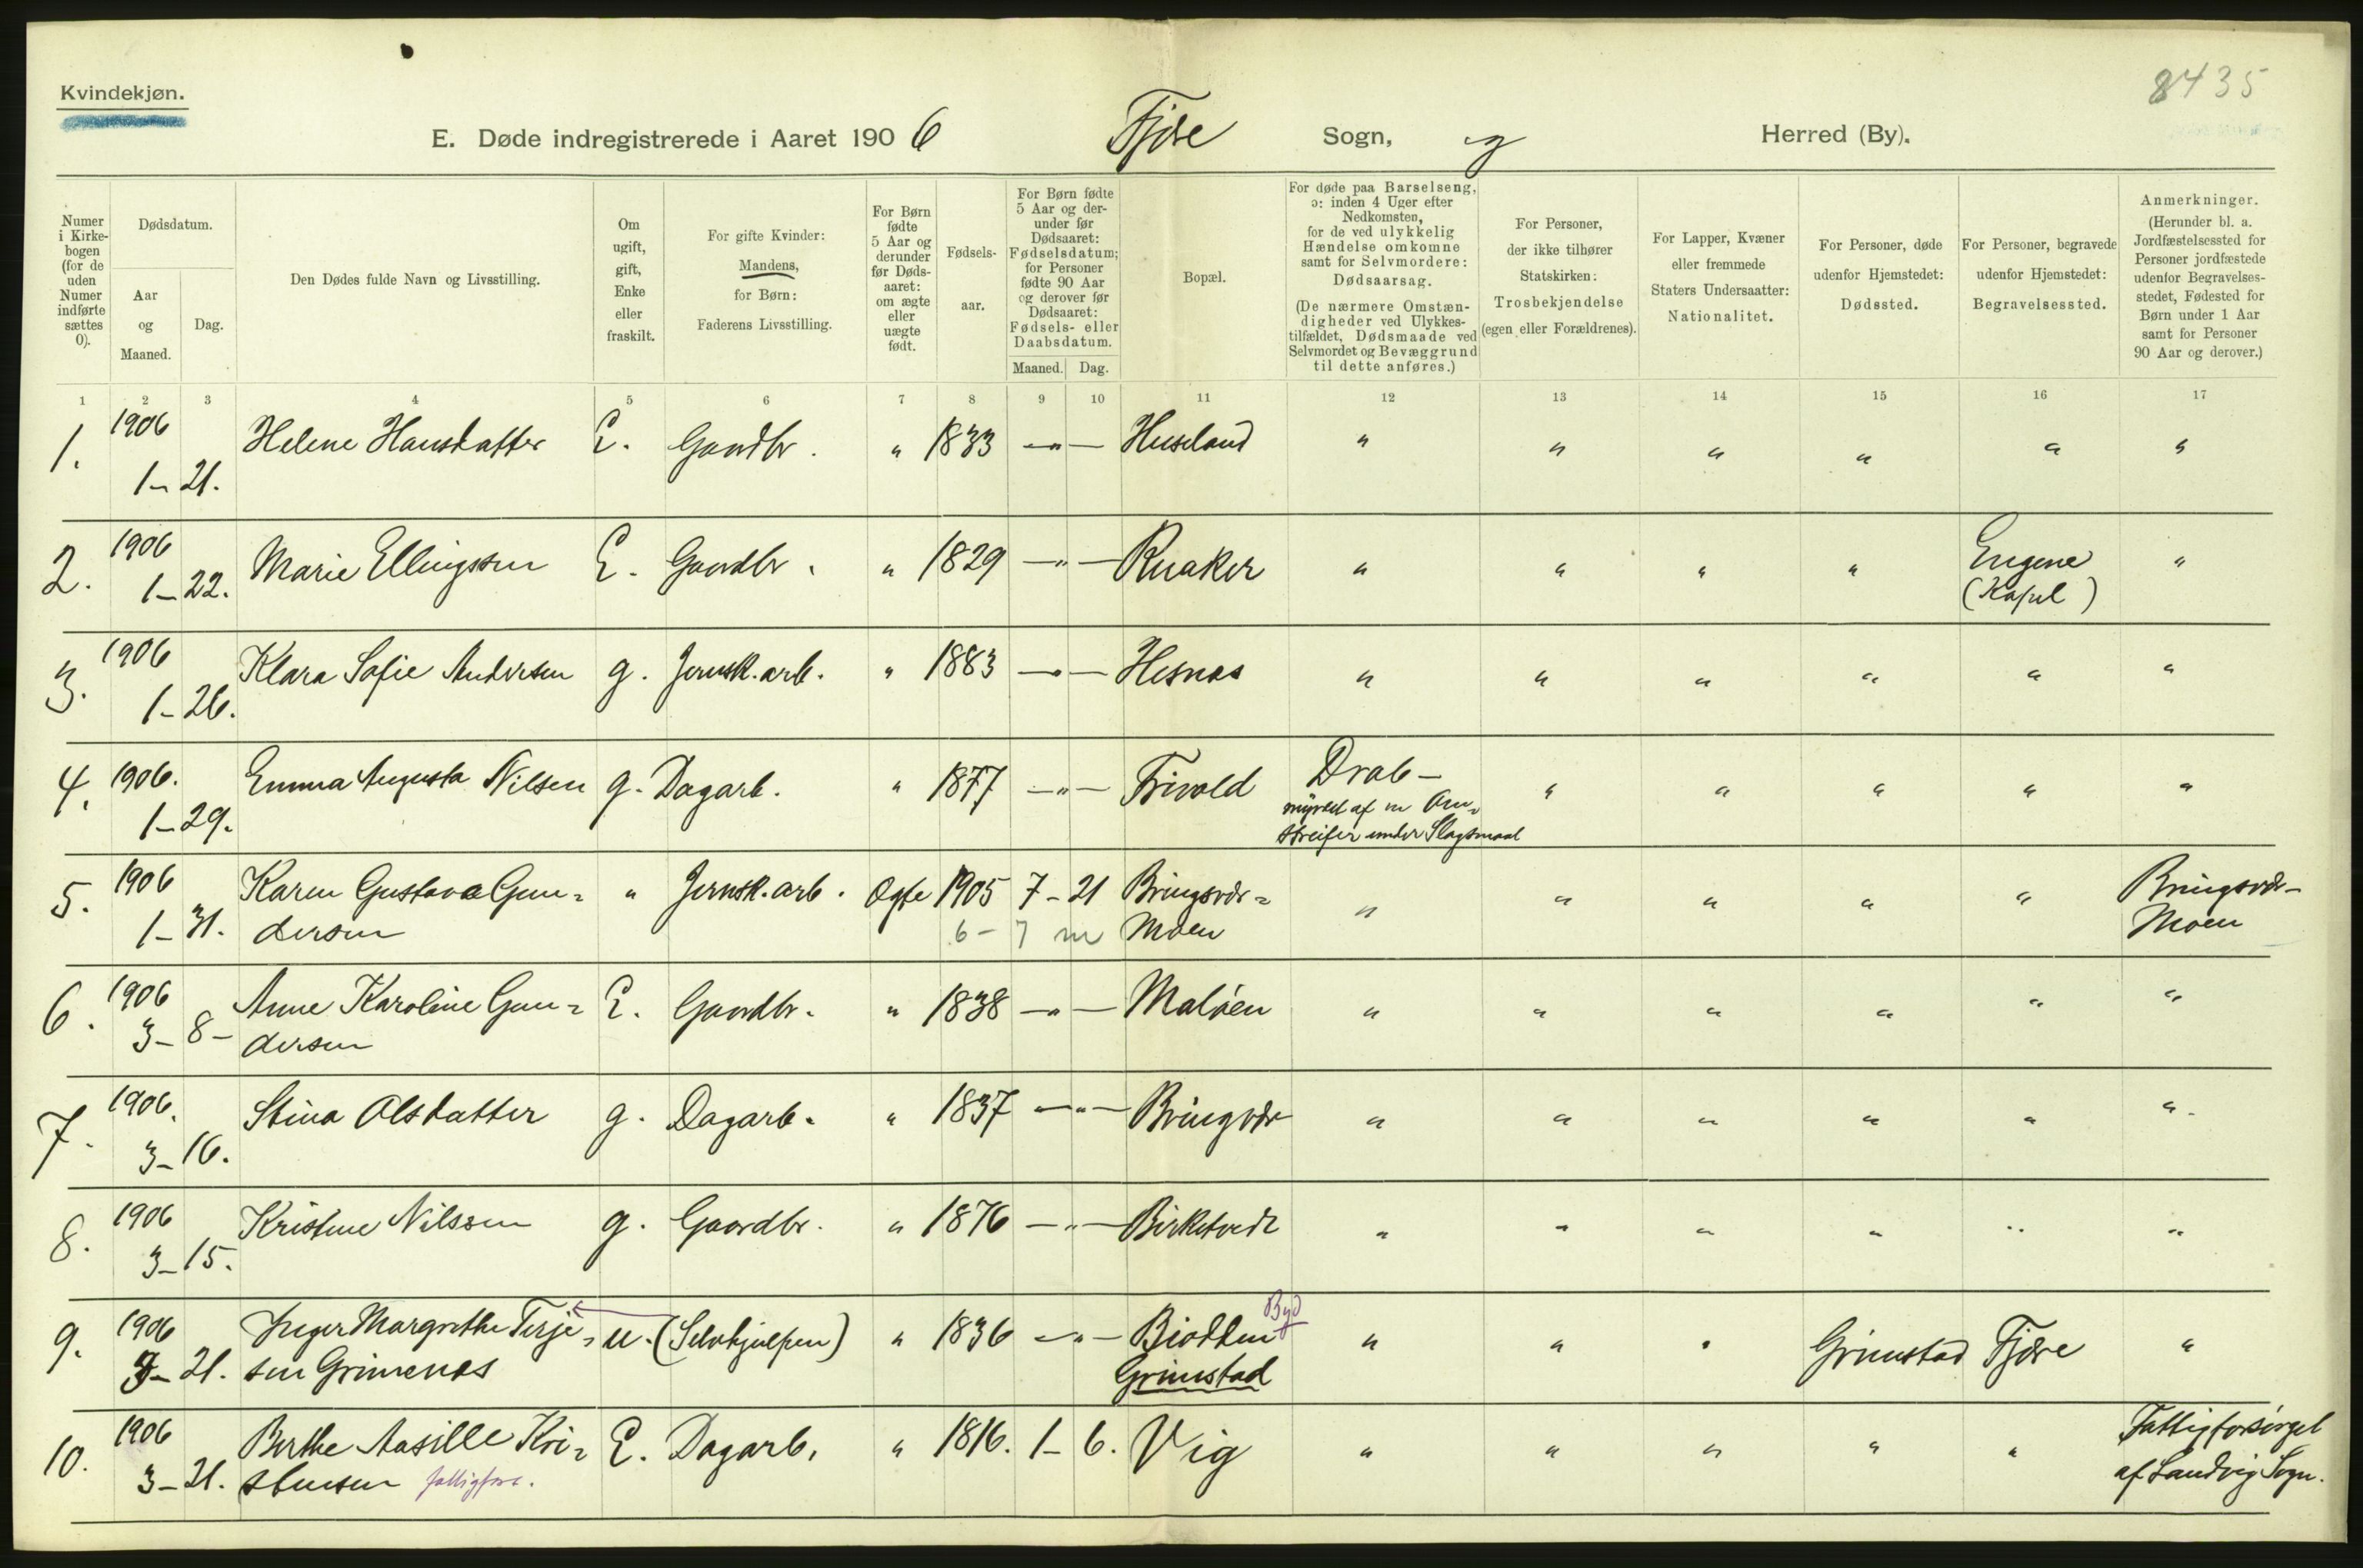 8435
Kvindekjøn.
E. Døde indregistrerede i Aaret 1906 Fjære Sogn, Herred (By).
Numer i Kirkebogen (for de uden Numer indførte sættes 0).
Dødsdatum.
Aar og Maaned.
Dag.
Den Dødes fulde Navn og Livsstilling.
Om ugift, gift, Enke eller fraskilt.
For gifte Kvinder: Mandens, for Børn: Faderens Livsstilling.
For Børn fødte 5 Aar og derunder før Dødsaaret: om ægte eller uægte født.
Fødselsaar.
For Børn fødte 5 Aar og derunder før Dødsaaret: Fødselsdatum; for Personer fødte 90 Aar og derover før Dødsaaret: Fødsels- eller Daabsdatum.
Maaned. Dag.
Bopæl.
For døde paa Barselseng, ɔ: inden 4 Uger efter Nedkomsten, for de ved ulykkelig Hændelse omkomne samt for Selvmordere: Dødsaarsag.
(De nærmere Omstændigheder ved Ulykkestilfældet, Dødsmaade ved Selvmordet og Bevæggrund til dette anføres.)
For Personer, der ikke tilhører Statskirken: Trosbekjendelse (egen eller Forældrenes).
For Lapper, Kvæner eller fremmede Staters Undersaatter: Nationalitet.
For Personer, døde udenfor Hjemstedet: Dødssted.
For Personer, begravede udenfor Hjemstedet: Begravelsessted.
Anmerkninger.
(Herunder bl. a. Jordfæstelsessted for Personer jordfæstede udenfor Begravelsesstedet, Fødested for Børn under 1 Aar samt for Personer 90 Aar og derover.)
1 2 3 4 5 6 7 8 9 10 11 12 13 14 15 16 17
1. 1906 1-21. Helene Hansdatter E. Gaardbr. " 1833 —"— Huseland " " " " " "
2. 1906 1-22. Marie Ellingsen E. Gaardbr. " 1829 —"— Ruaker " " " " Eugene (Kapel) "
3. 1906 1-26. Klara Sofie Andersen g. Jernsk.arb. " 1883 —"— Hesnes " " " " " "
4. 1906. 1-29. Emma Augusta Nilsen g. Dagarb. " 1877 —"— Frivold Drab-
myrdet af en Om=
streifer under Slagsmaal " " " " "
5. 1906 1-31. Karen Gustava Gun=
dersen " Jernsk.arb. Ægte 1905 7-21 Bringsvær=
Moen " " " " " Bringsvær-
Moen
6-7 m
6. 1906 3-8- Anne Karoline Gun=
dersen E. Gaardbr. " 1838 —"— Maløen " " " " " "
7. 1906. 3-16. Stina Olsdatter g. Dagarb. " 1837 —"— Bringvær " " " " " "
8. 1906 3-15. Kristine Nilssen g. Gaardbr. " 1876 —"— Birketvedt " " " " " "
9. 1906 3-21. Inger Margrethe Terje=
sen Grimenes u. (Selvhjulpen) " 1836 —"— Biodden Byd
Grimstad " " " Grimstad Fjære "
10. 1906 3-21. Berthe Aasille Kri=
stensen fattigfors. E. Dagarb. " 1816. 1-6. Vig " " " " " Fattigforsørget
af Landvig Sogn.